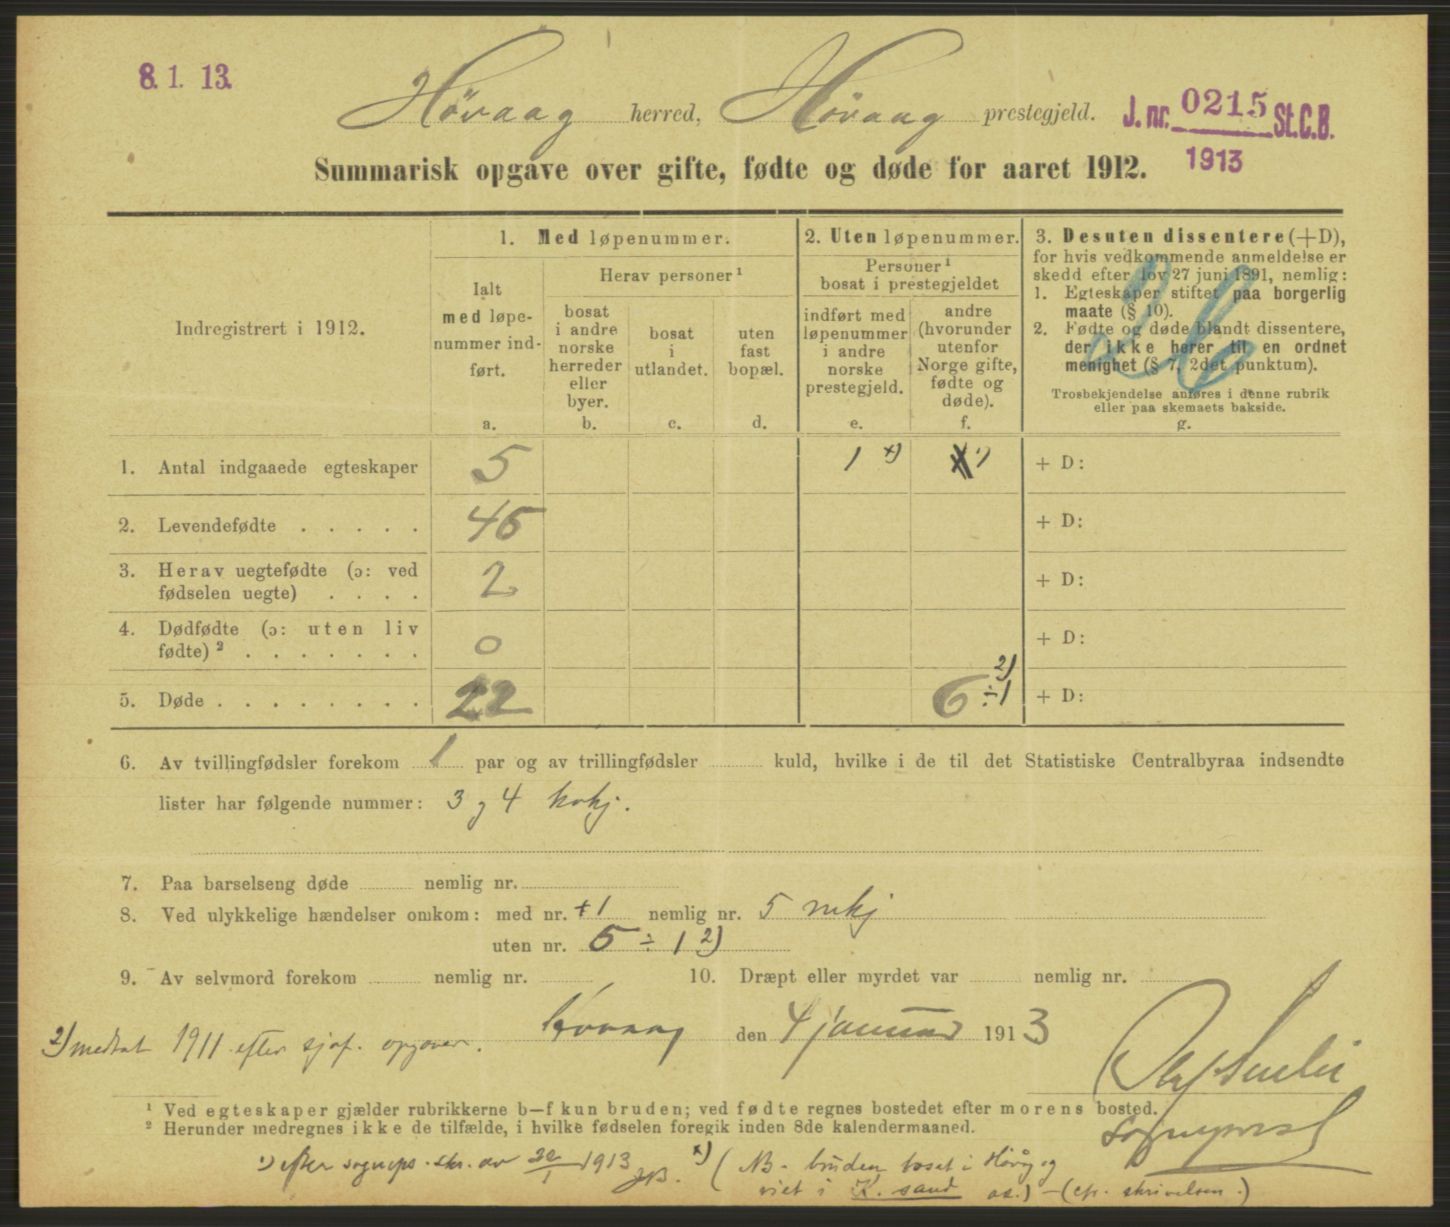 8. 1. 13.
Høvaag herred, Høvaag prestegjeld.
J. nr. 0215 St. C. B.
1913
Summarisk opgave over gifte, fødte og døde for aaret 1912.
Indregistrert i 1912.
1. Med løpenummer.
Ialt med løpenummer indført.
a.
Herav personer ¹
bosat i andre norske herreder eller byer.
b.
bosat i utlandet.
c.
uten fast bopæl.
d.
2. Uten løpenummer.
Personer ¹ bosat i prestegjeldet
indført med løpenummer i andre norske prestegjeld.
e.
andre (hvorunder utenfor Norge gifte, fødte og døde).
f.
3. Desuten dissentere (+D),
for hvis vedkommende anmeldelse er
skedd efter lov 27 juni 1891, nemlig:
1. Egteskaper stiftet paa borgerlig
maate (§ 10).
2. Fødte og døde blandt dissentere,
der ikke hører til en ordnet
menighet (§ 7, 2det punktum).
Trosbekjendelse anføres i denne rubrik
eller paa skemaets bakside.
g.
1. Antal indgaaede egteskaper 5 1 x) 1) + D:
2. Levendefødte . . . . . 45 + D:
3. Herav uegtefødte (ɔ: ved
fødselen uegte) . . . . 2 + D:
4. Dødfødte (ɔ: uten liv
fødte) ² . . . . . . . 0 + D:
5. Døde . . . . . . . . 22 6 ÷1 2) + D:
6. Av tvillingfødsler forekom 1 par og av trillingfødsler kuld, hvilke i de til det Statistiske Centralbyraa indsendte
lister har følgende nummer: 3 og 4
7. Paa barselseng døde nemlig nr.
8. Ved ulykkelige hændelser omkom: med nr. +1 nemlig nr. 5 mkj
uten nr. 5 ÷ 1 2)
9. Av selvmord forekom nemlig nr. 10. Dræpt eller myrdet var nemlig nr.
Høvaag den 4 januar 1913
2) medtat 1911 efter sjøf. opgaver.
sogneprest
¹ Ved egteskaper gjælder rubrikkerne b—f kun bruden; ved fødte regnes bostedet efter morens bosted.
² Herunder medregnes ikke de tilfælde, i hvilke fødselen foregik inden 8de kalendermaaned.
1) efter sogneps. skr. av 1913
x) (NB. bruden bosat i Høvåg og
viet i K. sand (cfr. skrivelsen.)